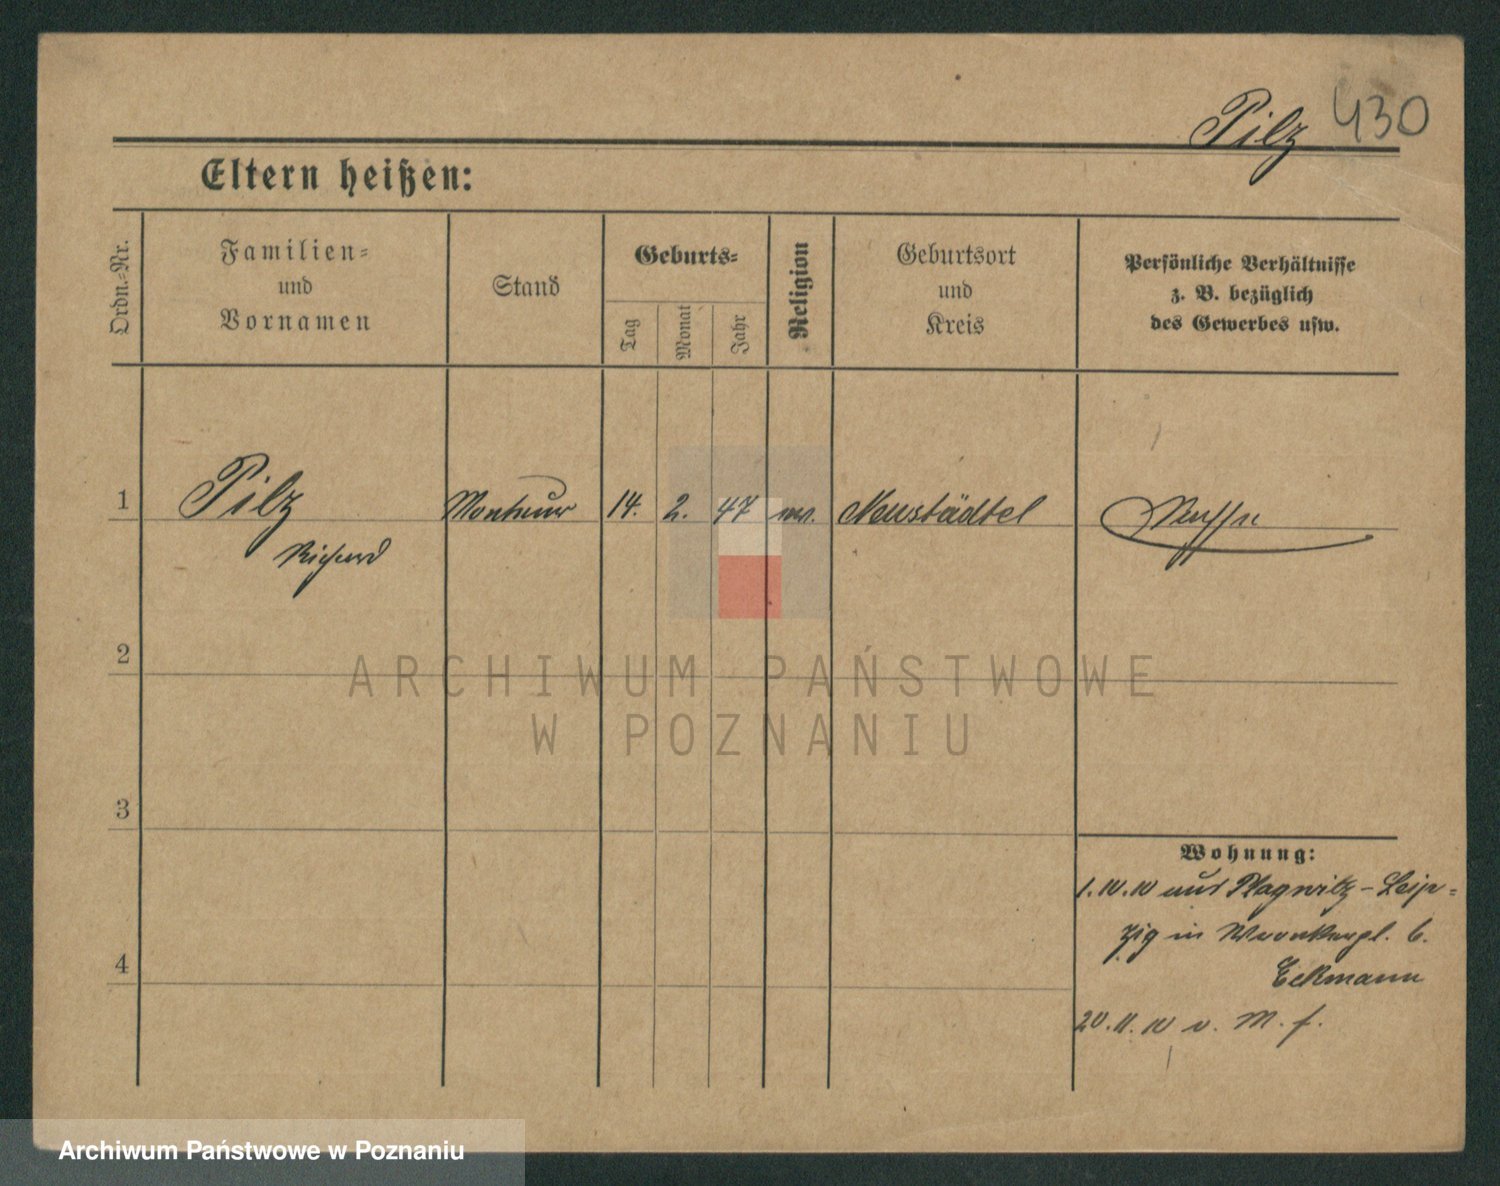 Pilz 430
Eltern heißen:
Ordn.-Nr.
Familien-
und
Vornamen
Stand
Geburts-
Tag
Monat
Jahr
Religion
Geburtsort
und
Kreis
Persönliche Verhältnisse
z. B. bezüglich
des Gewerbes usw.
1 Pilz Monteur 14. 2. 47 ev. Neustädtel
Richard
2
3
4
Wohnung:
1.10.10 aus Plagwitz-Leip-
zig in b.
Eckmann
20.11.10 v. M. f.
ARCHIWUM PAŃSTWOWE
W POZNANIU
Archiwum Państwowe w Poznaniu